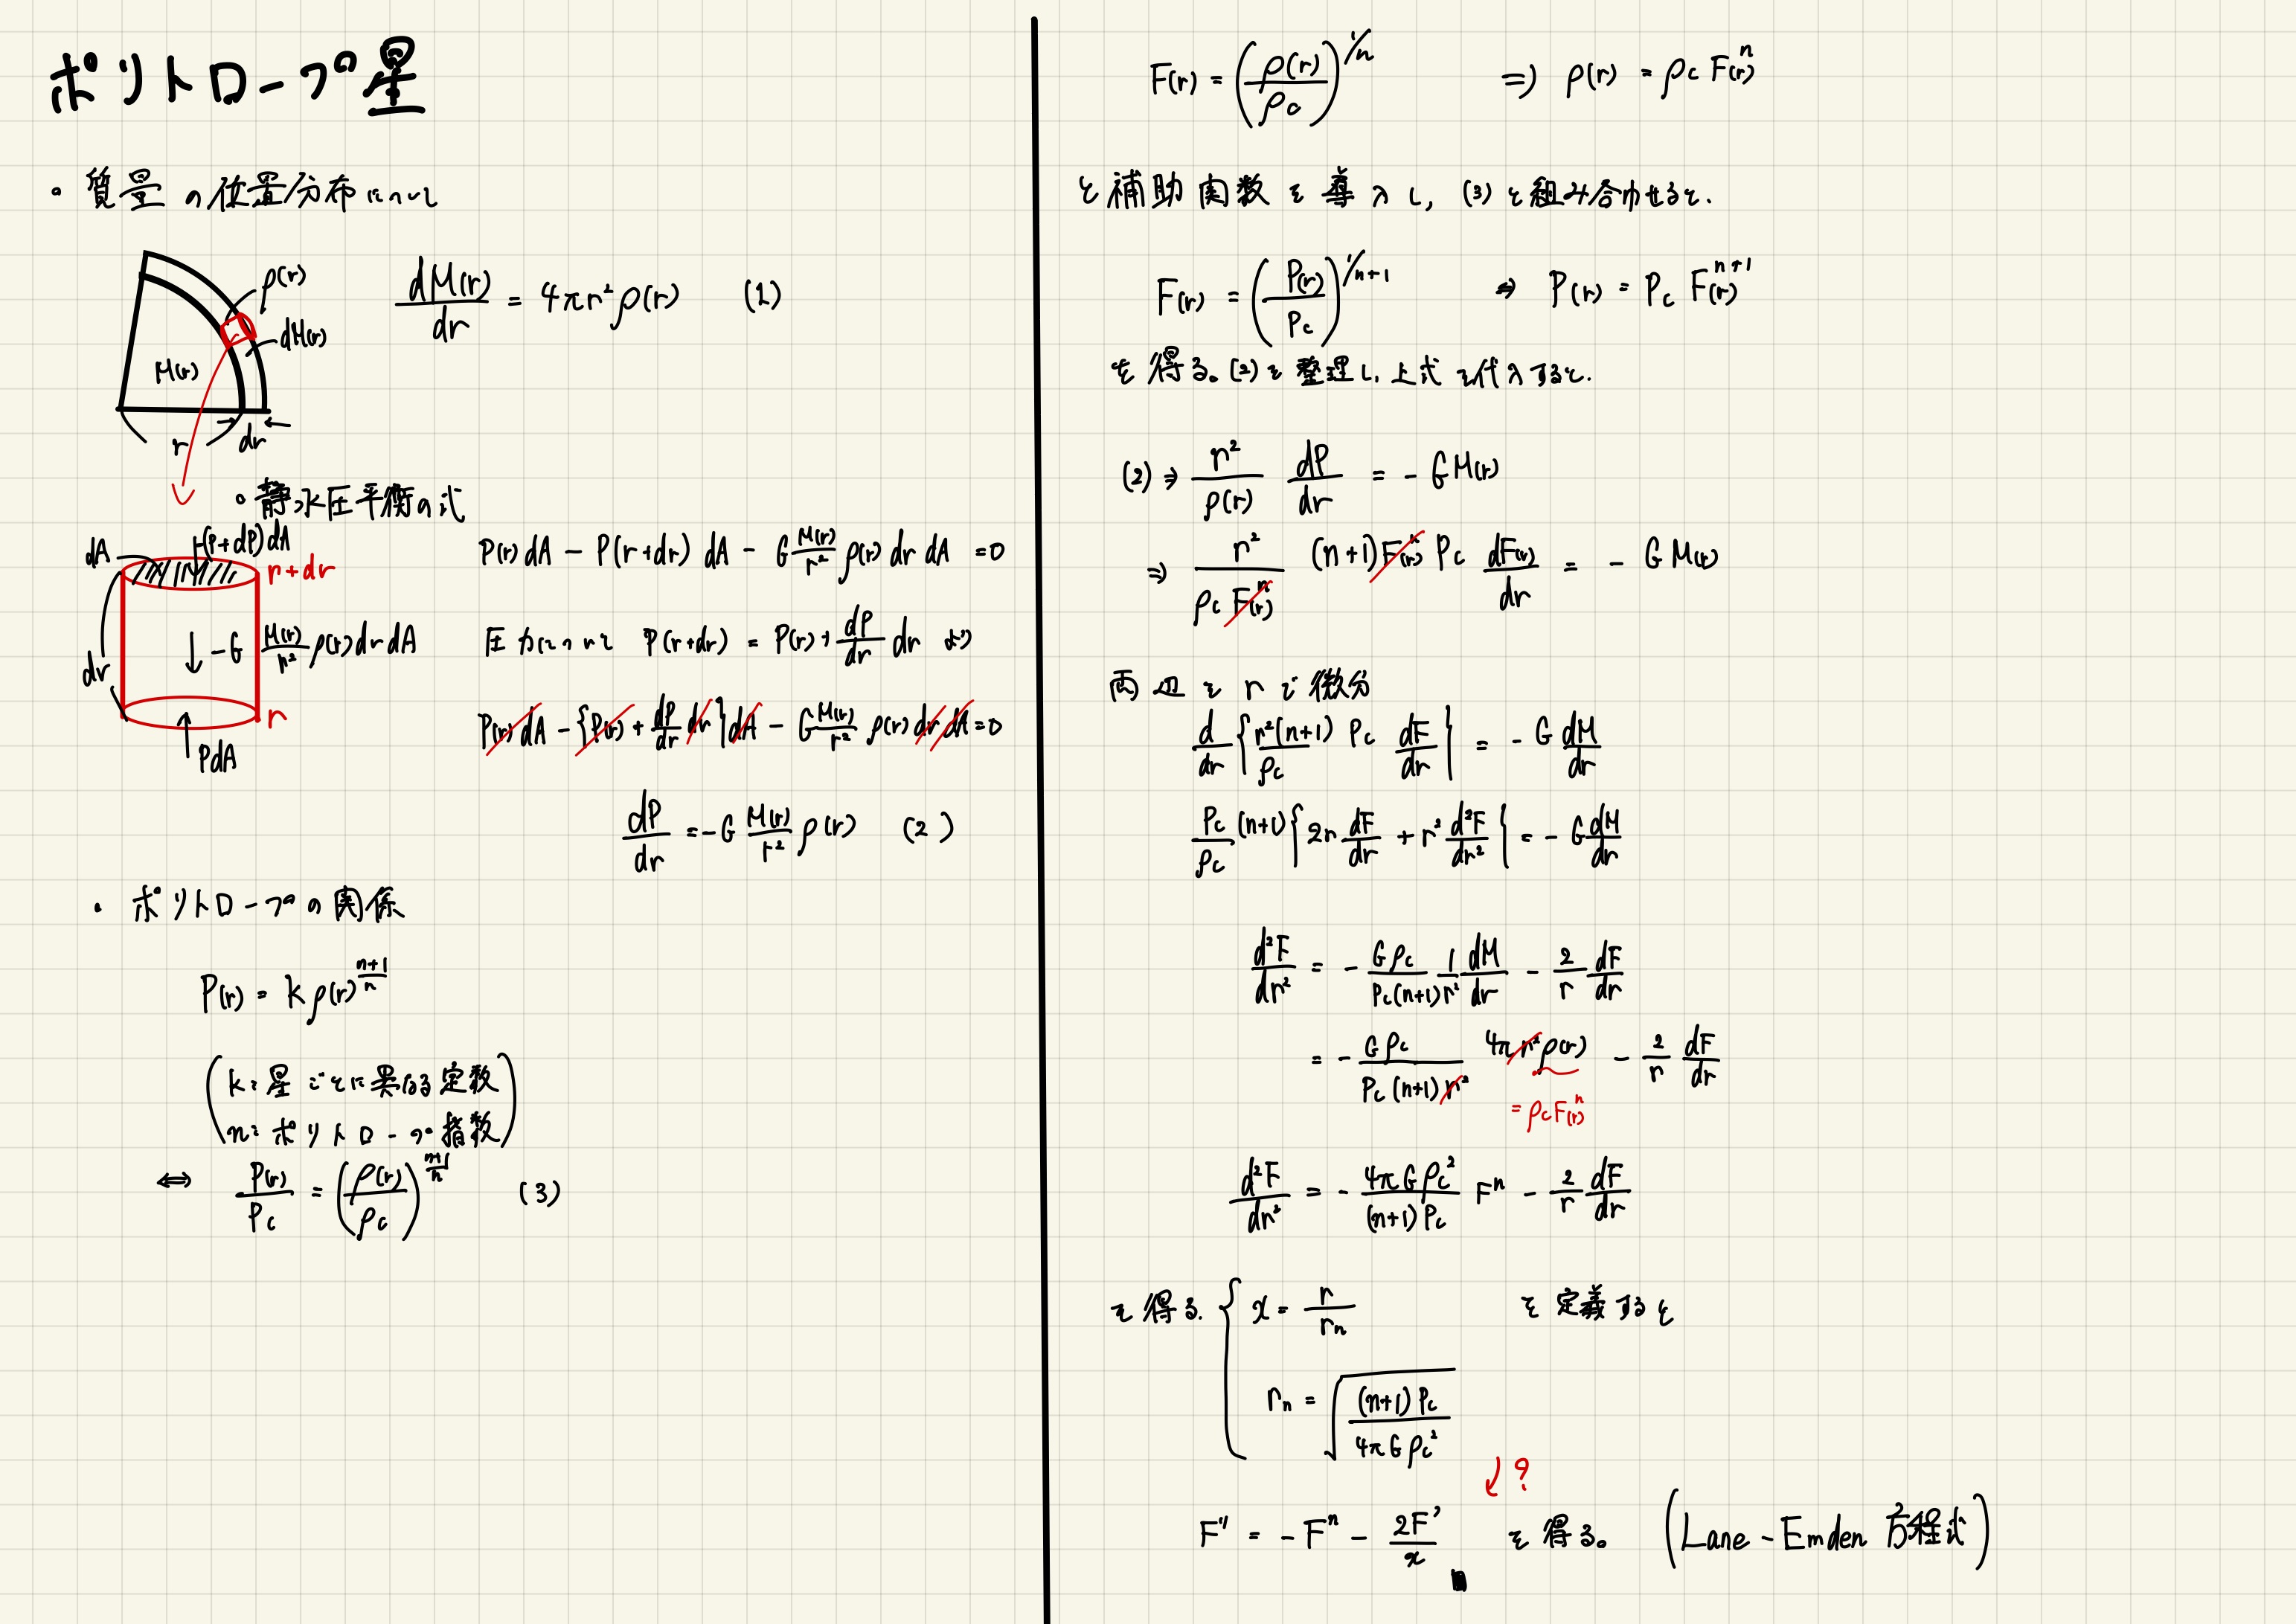 ポリトロープ星
・質量の位置分布について
ρ(r)
dM(r)
M(r)
r
dr
dM(r)/dr = 4πr²ρ(r) (1)
・静水圧平衡の式
dA
(P+dP)dA
r+dr
dr
↓ -G M(r)/r² ρ(r)drdA
r
↑ PdA
P(r)dA - P(r+dr)dA - G M(r)/r² ρ(r)dr dA = 0
圧力について P(r+dr) = P(r) + dP/dr dr より
P(r)dA - {P(r) + dP/dr dr}dA - G M(r)/r² ρ(r)dr dA = 0
dP/dr = -G M(r)/r² ρ(r) (2)
・ポリトロープの関係
P(r) = kρ(r)^((n+1)/n)
(k:星ごとに異なる定数
n:ポリトロープ指数)
⇔ P(r)/Pc = (ρ(r)/ρc)^((n+1)/n) (3)
F(r) = (ρ(r)/ρc)^(1/n) ⇒ ρ(r) = ρc F(r)^n
と補助関数を導入し, (3)と組み合わせると.
F(r) = (P(r)/Pc)^(1/n+1) ⇒ P(r) = Pc F(r)^(n+1)
を得る。(2)を整理し, 上式を代入すると.
(2) ⇒ r²/ρ(r) dP/dr = -GM(r)
⇒ r²/(ρc F(r)^n) (n+1)F(r)^n Pc dF(r)/dr = -GM(r)
両辺をrで微分
d/dr {r²(n+1)/ρc Pc dF/dr} = -G dM/dr
Pc/ρc (n+1){2r dF/dr + r² d²F/dr²} = -G dM/dr
d²F/dr² = -Gρc/(Pc(n+1)) 1/r² dM/dr - 2/r dF/dr
= -Gρc/(Pc(n+1)r²) 4πr²ρ(r) - 2/r dF/dr
= ρcF(r)^n
d²F/dr² = -4πGρc²/((n+1)Pc) F^n - 2/r dF/dr
を得る. { x = r/rn を定義すると
rn = √((n+1)Pc/(4πGρc²))
↙?
F'' = -F^n - 2F'/x を得る。 (Lane-Emden 方程式)